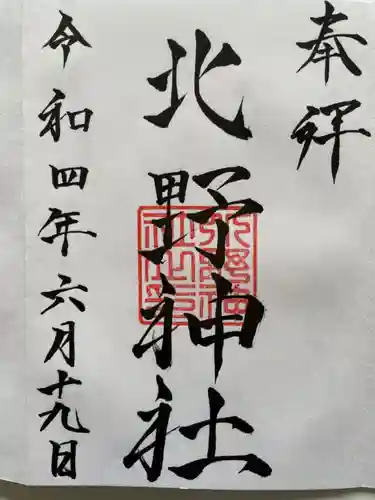 奉拝
北野神社
令和四年六月十九日